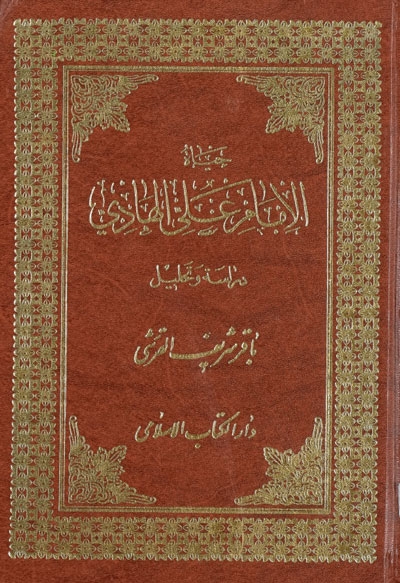 حياة
الإمام علي الهادي
دراسة وتحليل
باقر شريف القرشي
دار الكتاب الإسلامي